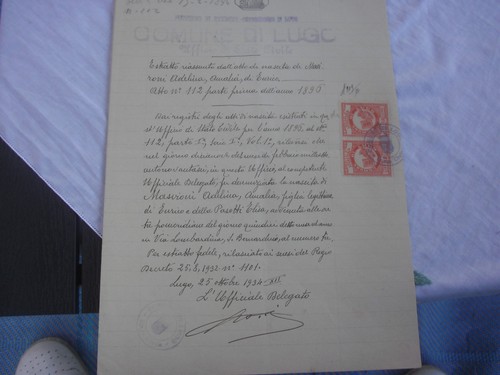 COMUNE DI LUGO
Estratto riassunto dall'atto di nascita di Mas-
roni Adelina, Amalia, di Enrico
Atto N° 112 parte prima dell'anno 1896
Dai registri degli atti di nascita, esistenti in que-
st'Ufficio di Stato Civile per l'anno 1896, al N°
112, parte Iª, Serie, Vol. 1º, rilevasi che
nel giorno diciannove del mese di febbraio mille otto-
cento novantasei, in questo Ufficio, al competente
Ufficiale Delegato, fu denunziata la nascita di
Masroni Adelina, Amalia, figlia legittima
di Enrico e della Pasotti Elisa, avvenuta alle ore
pomeridiane del giorno quindici detto mese
in Via Lombardina, S. Bernardino, al numero
Per estratto fedele, rilasciato ai sensi del Regio
Decreto 25.8.1932 n° 1101.
Lugo, 25 ottobre 1934-XII
L'Ufficiale Delegato